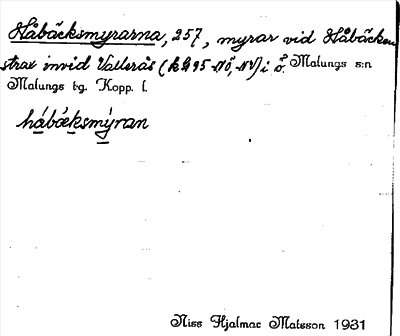 Håbäcksmyrarna, 257, myrar vid Håbäcken
strax invid Vallerås (kbl 95 NÖ, NV) i ö. Malungs s:n
Malungs tg. Kopp. l.
håbäcksmýran
Niss Hjalmar Matsson 1931